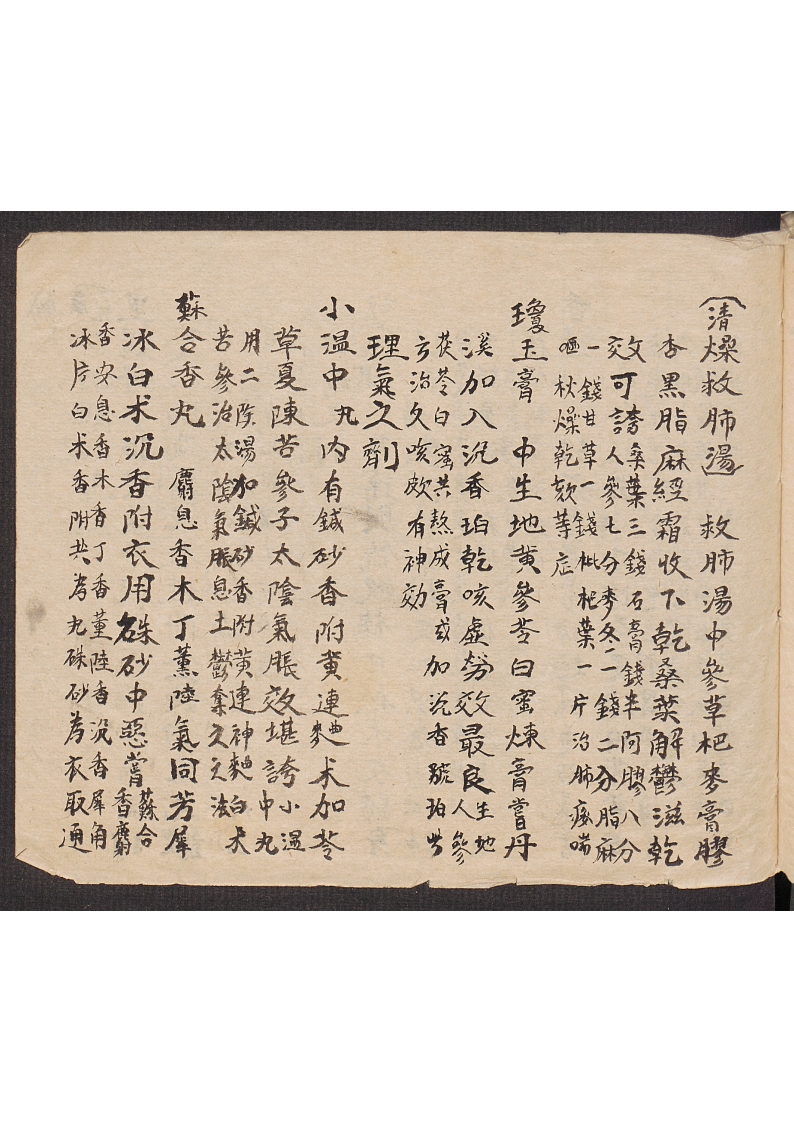 清燥救肺湯　救肺湯中參草杷麥膏膠
杏黑脂麻經霜收下乾桑葉解鬱滋乾
效可誇桑葉三錢石膏錢半阿膠八分
人參七分麥冬二錢二分脂麻
一錢甘草一錢枇杷葉一片治肺痿喘
嘔秋燥乾欬等症
瓊玉膏　中生地黄參苓白蜜煉膏嘗丹
溪加入沉香珀乾咳虛勞效最良生地
人參
茯苓白蜜共熬成膏或加沉香琥珀
方治久咳頗有神効
理氣之劑
小温中丸内有鍼砂香附黄連麯术加苓
草夏陳苦參子太陰氣脹效堪誇小温
中丸
用二陳湯加鍼砂香附黄連神麯白术
苦參治太陰氣脹息土鬱奪之之法
蘇合香丸　麝息香木丁薰陸氣同芳犀
冰白术沉香附衣用硃砂中惡嘗蘇合
香麝
香安息香木香丁香薰陸香沉香犀角
冰片白术香附共為丸硃砂為衣取通